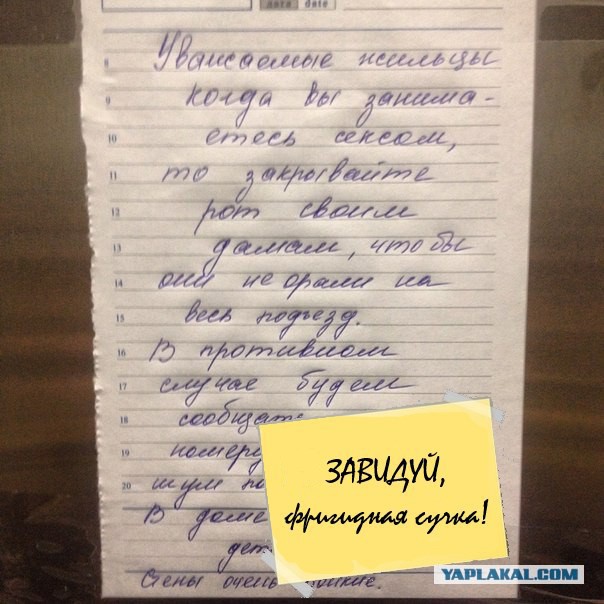 дата date
8 Уважаемые жильцы
9 когда вы занима-
10 етесь сексом,
11 то закрывайте
12 рот своим
13 дамам, чтобы
14 они не орали на
15 весь подъезд.
16 В противном
17 случае будем
18 сообщать
19 номеру
20 шум по
В доме
дет
Стены очень тонкие.
ЗАВИДУЙ,
фригидная сучка!
YAPLAKAL.COM